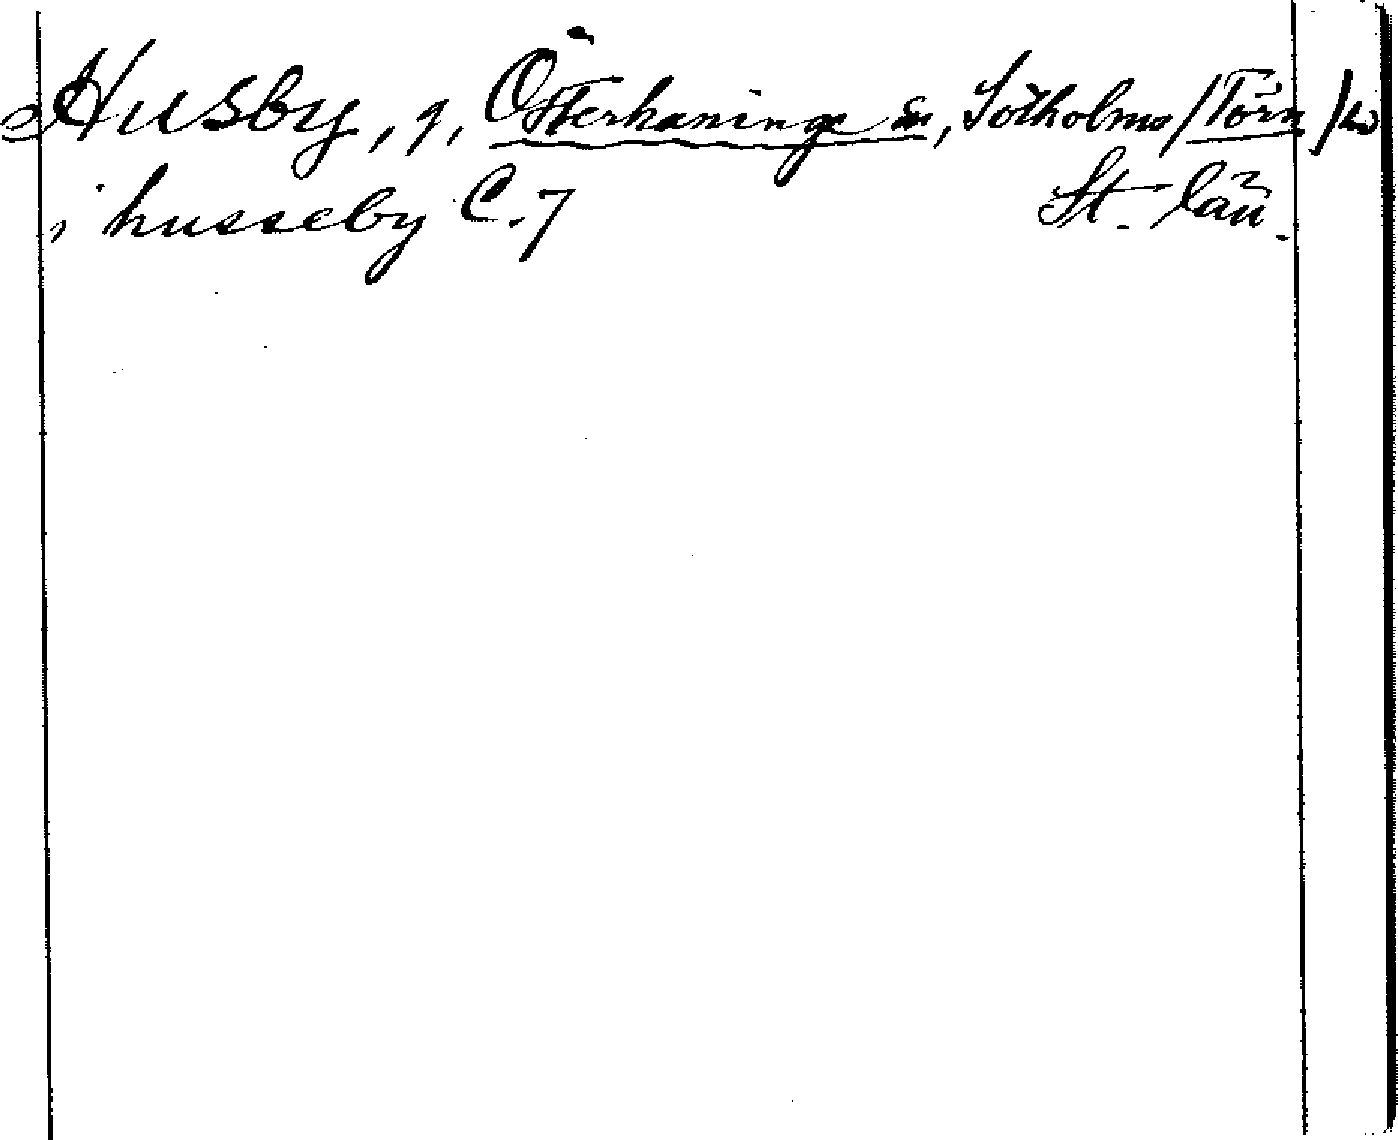 Husby, g, Österhaninge sn, Sotholms /Törn/ hd
i husseby C. 7 St. län.